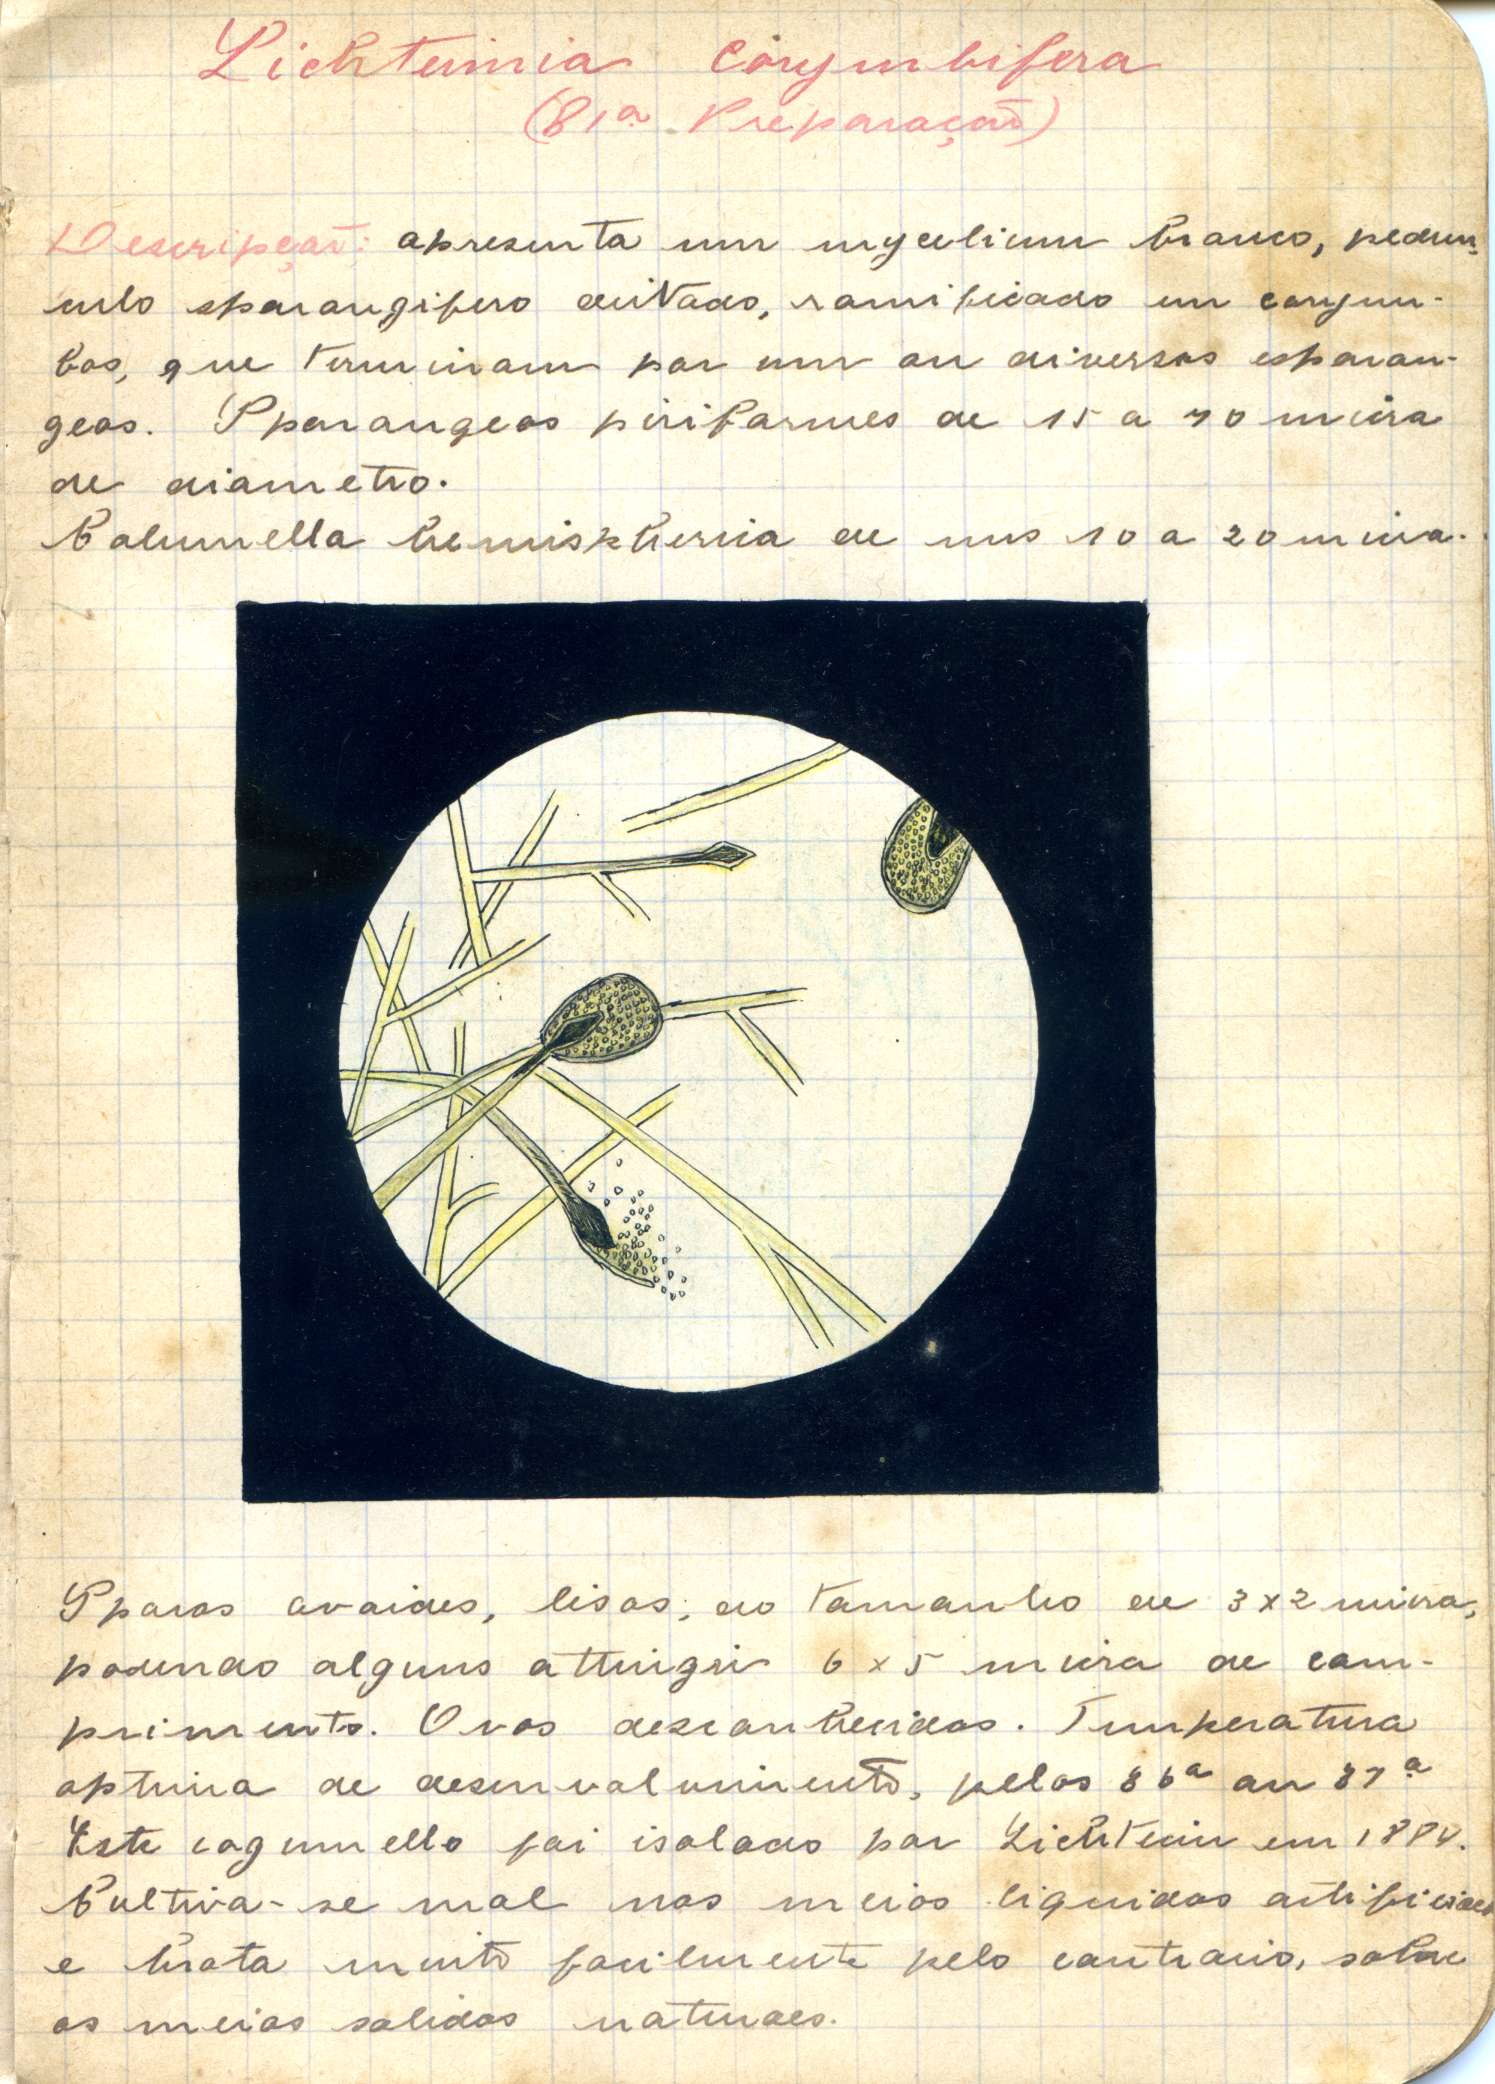 Lichteinia Corymbifera
(81ª Preparação)
Descripção: apresenta um mycelium branco, pedun-
culo sporangifero deitado, ramificado em corym-
bos, que terminam por um ou diversos esporan-
geos. Sporangeos piriformes de 15 a 70 micra
de diametro.
Columella hemispherica de uns 10 a 20 micra.
Sporos ovoides, lisos, do tamanho de 3x2 micra,
podendo alguns attingir 6x5 micra de com-
primento. Ovos desconhecidos. Temperatura
optima de desenvolvimento, pelos 36ª ou 37ª
Este cogumello foi isolado por Lichtein em 1884.
Cultiva-se mal nos meios liquidos artificiaes
e brota muito facilmente pelo contrario, sobre
os meios solidos naturaes.